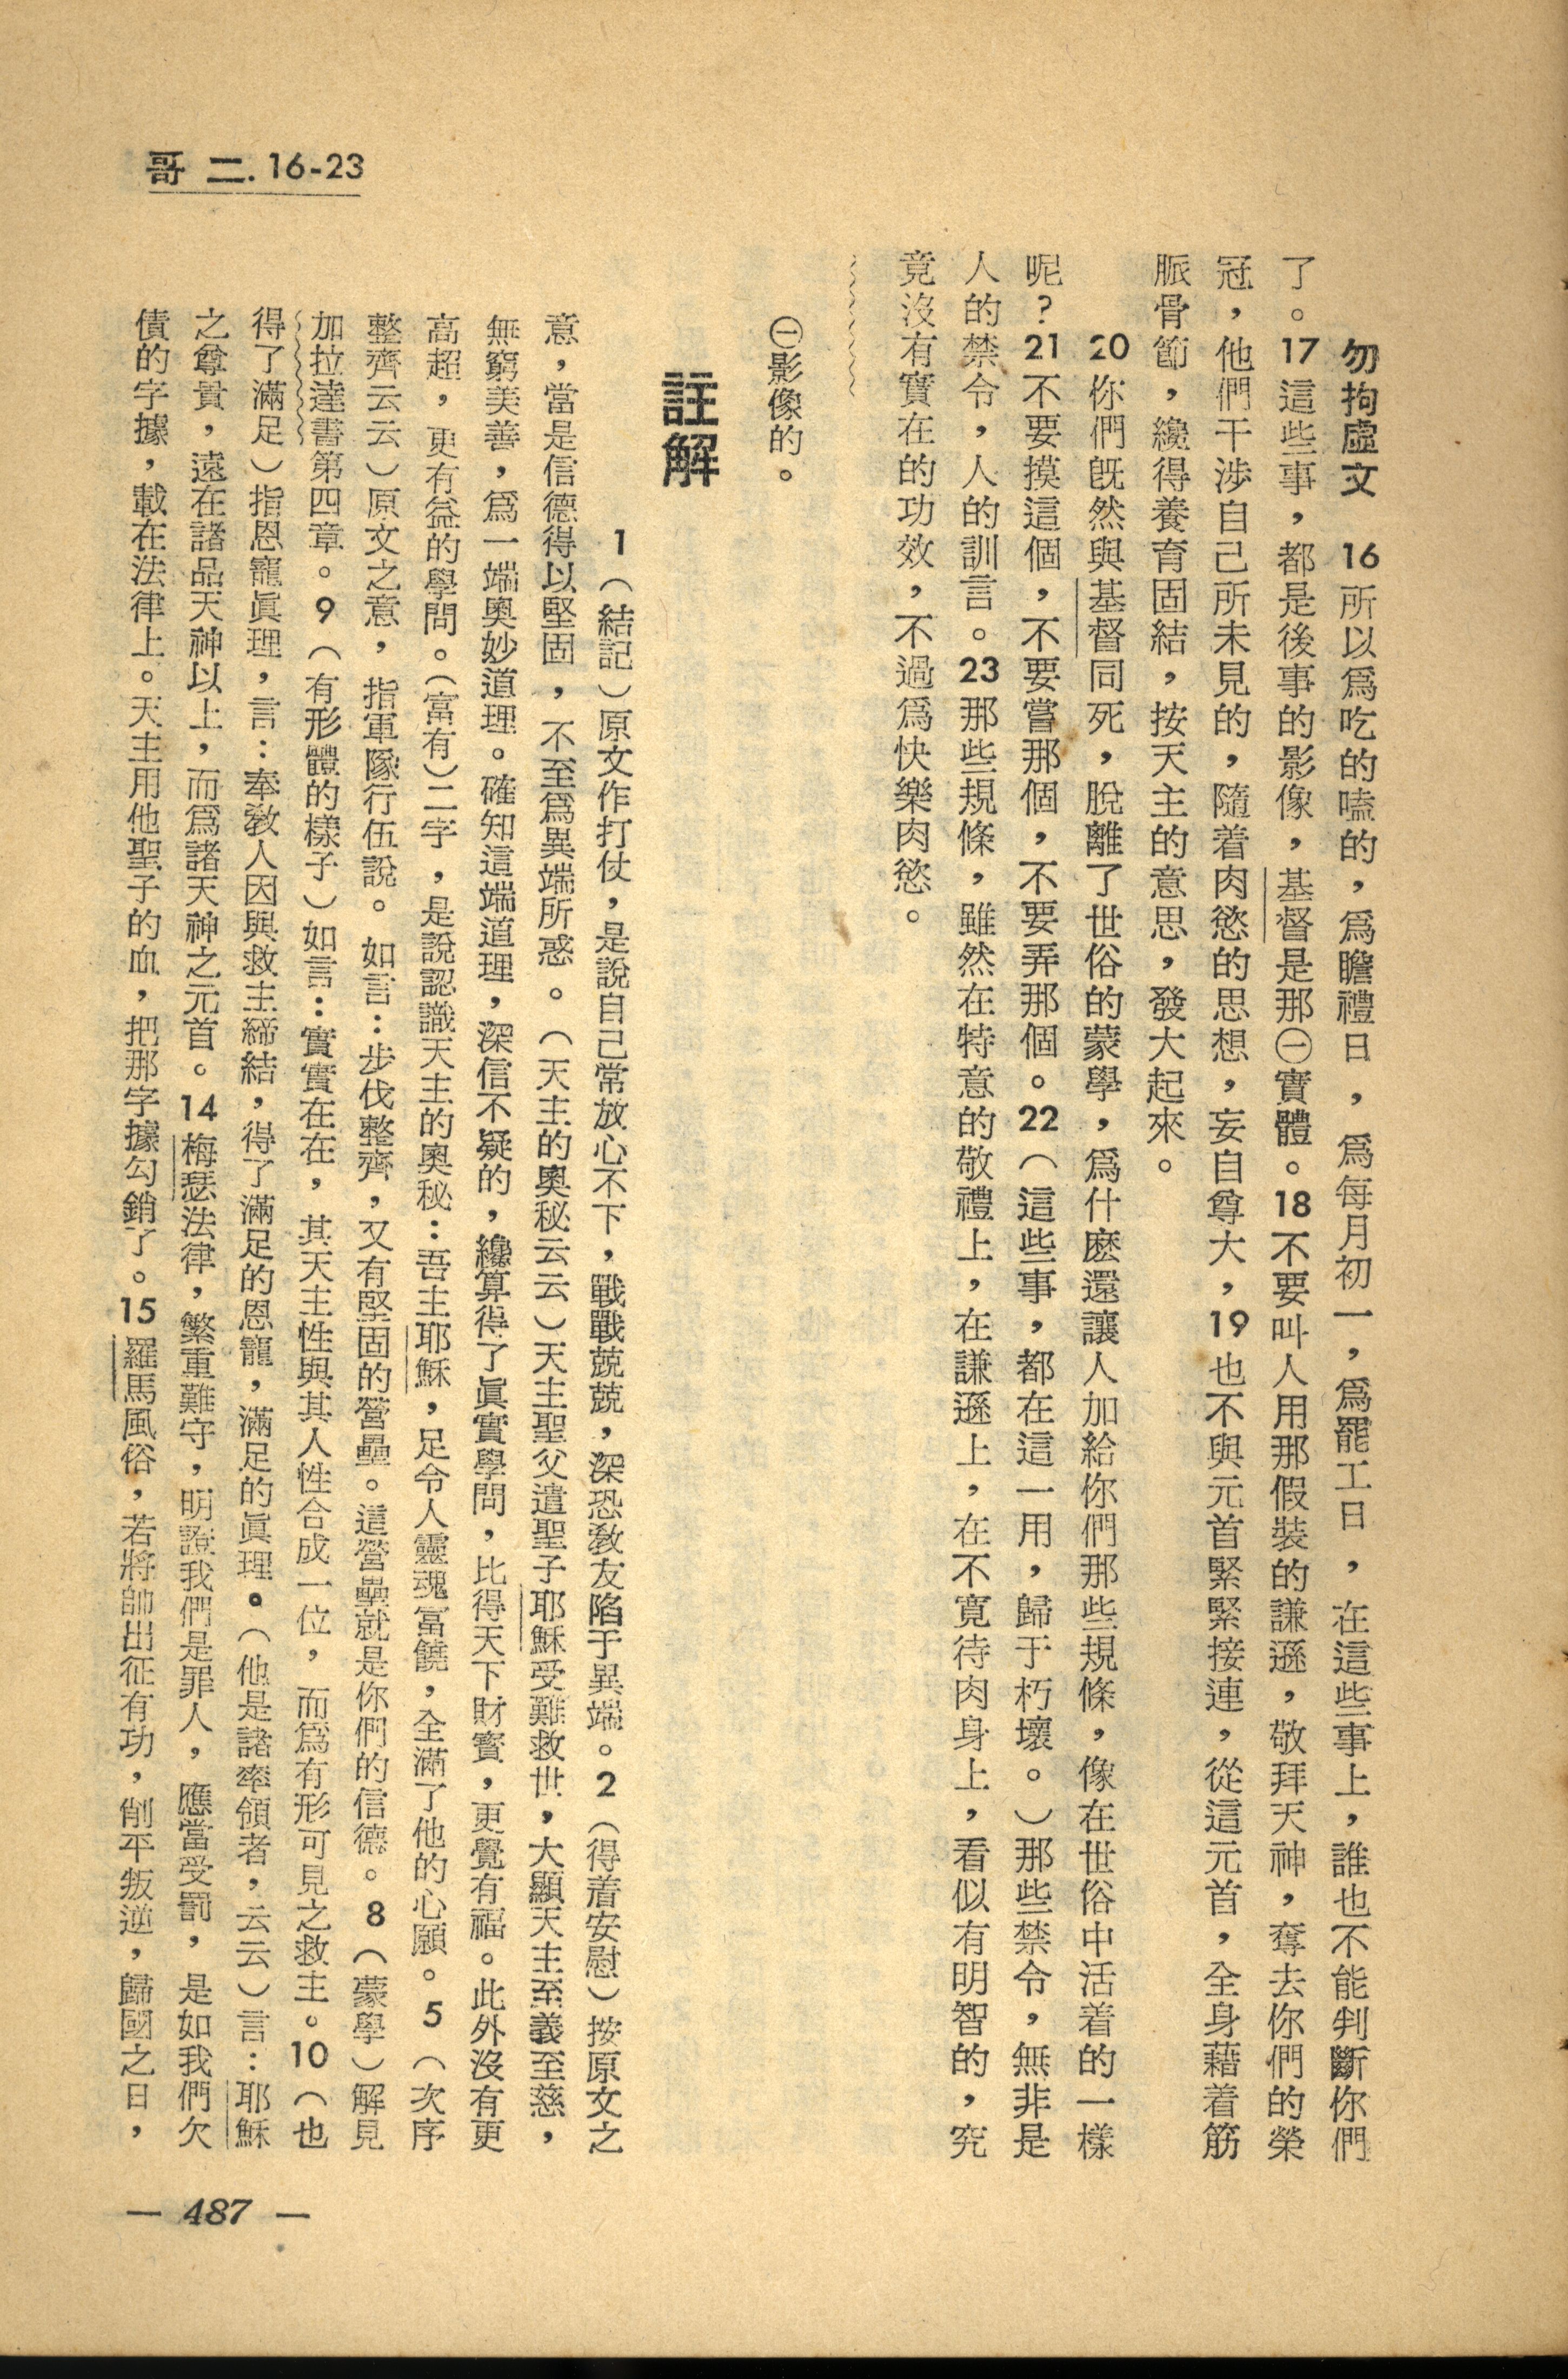 哥 二. 16-23
勿拘虛文　16 所以爲吃的嗑的，爲瞻禮日，爲每月初一，爲罷工日，在這些事上，誰也不能判斷你們
了。17 這些事，都是後事的影像，基督是那㊀實體。18 不要叫人用那假裝的謙遜，敬拜天神，奪去你們的榮
冠，他們干涉自己所未見的，隨着肉慾的思想，妄自尊大，19 也不與元首緊緊接連，從這元首，全身藉着筋
脈骨節，纔得養育固結，按天主的意思，發大起來。
20 你們旣然與基督同死，脫離了世俗的蒙學，爲什麽還讓人加給你們那些規條，像在世俗中活着的一樣
呢？21 不要摸這個，不要嘗那個，不要弄那個。22（這些事，都在這一用，歸于朽壞。）那些禁令，無非是
人的禁令，人的訓言。23 那些規條，雖然在特意的敬禮上，在謙遜上，在不寬待肉身上，看似有明智的，究
竟沒有實在的功效，不過爲快樂肉慾。
㊀影像的。
註解
1（結記）原文作打仗，是說自己常放心不下，戰戰兢兢，深恐敎友陷于異端。2（得着安慰）按原文之
意，當是信德得以堅固，不至爲異端所惑。（天主的奧秘云云）天主聖父遣聖子耶穌受難救世，大顯天主至義至慈，
無窮美善，爲一端奧妙道理。確知這端道理，深信不疑的，纔算得了眞實學問，比得天下財寳，更覺有福。此外沒有更
高超，更有益的學問。（富有）二字，是說認識天主的奧秘：吾主耶穌，足令人靈魂富饒，全滿了他的心願。5（次序
整齊云云）原文之意，指軍隊行伍說。如言：步伐整齊，又有堅固的營壘。這營壘就是你們的信德。8（蒙學）解見
加拉達書第四章。9（有形體的樣子）如言：實實在在，其天主性與其人性合成一位，而爲有形可見之救主。10（也
得了滿足）指恩寵眞理，言：奉敎人因與救主締結，得了滿足的恩寵，滿足的眞理。（他是諸率領者，云云）言：耶穌
之尊貴，遠在諸品天神以上，而爲諸天神之元首。14 梅瑟法律，繁重難守，明證我們是罪人，應當受罰，是如我們欠
債的字據，載在法律上。天主用他聖子的血，把那字據勾銷了。15 羅馬風俗，若將帥出征有功，削平叛逆，歸國之日，
— 487 —